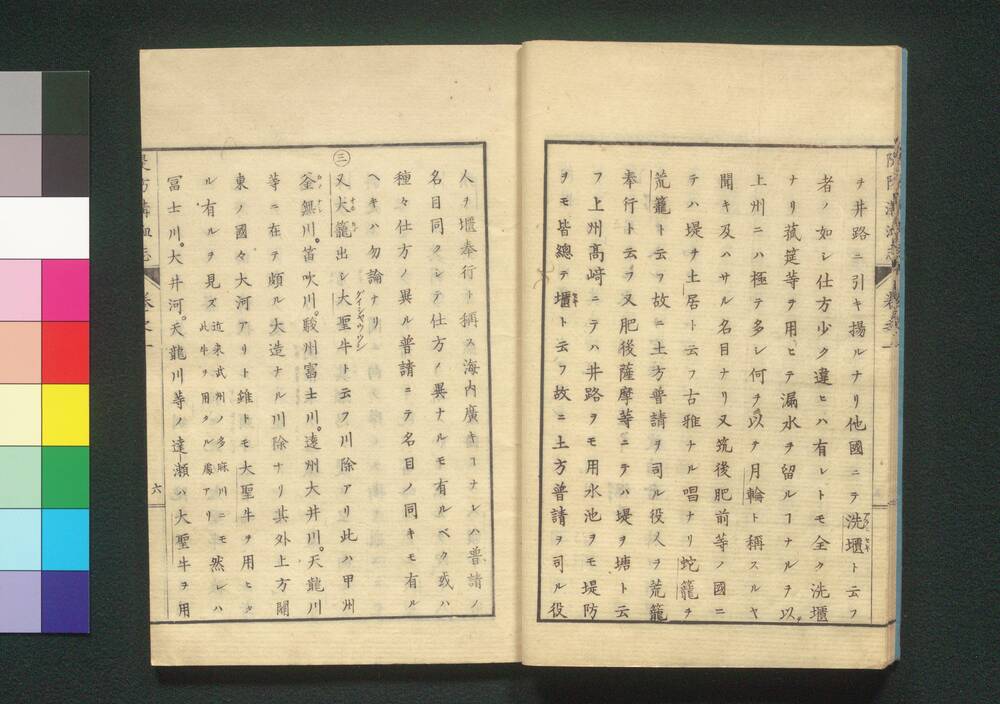 ヲ井路ニ引キ揚ルナリ他國ニテ洗堰ト云フ
アラヒセキ
者ノ如シ仕方少ク違ヒハ有レトモ全ク洗堰
ナリ莚等ヲ用ヒテ漏水ヲ留ルヿナルヲ以
上州ニハ極テ多シ何ヲ以テ月輪ト稱スルヤ
聞キ及ハサル名目ナリ又筑後肥前等ノ國ニ
テハ堤ヲ土居ト云フ古雅ナル唱ナリ蛇籠ヲ
荒籠ト云フ故ニ土方普請ヲ司ル役人ヲ荒籠
奉行ト云フ又肥後薩摩等ニテハ堤ヲ塘ト云
フ上州髙﨑ニテハ井路ヲモ用水池ヲモ堤防
ヲモ皆總テ堰ト云フ故ニ土方普請ヲ司ル役
人ヲ堰奉行ト稱ス海内廣キヿナレハ普請ノ
名目同クシテ仕方ノ異ナルモ有ルベク或ハ
種々仕方ノ異ル普請ニテ名目ノ同キモ有ル
ヘキハ勿論ナリ
㊂
又大籠出シ大聖牛ト云フ川除アリ此ハ甲州
釜無川。笛吹川。駿州富士川。遠州大井川。天龍川
等ニ在テ頗ル大造ナル川除ナリ其外上方關
東ノ國々大河アリト雖トモ大聖牛ヲ用ヒタ
ル有ルヲ見ズ
近来武州ノ多麻川ニモ
此牛ヲ用タル處アリ
然レハ
冨士川。大井河。天龍川等ノ達瀬ハ大聖牛ヲ用
卷之一
六